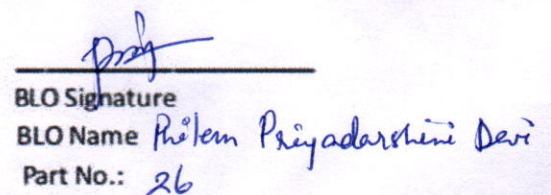 BLO Signature
BLO Name Philem Priyadarshini Devi
Part No.: 26